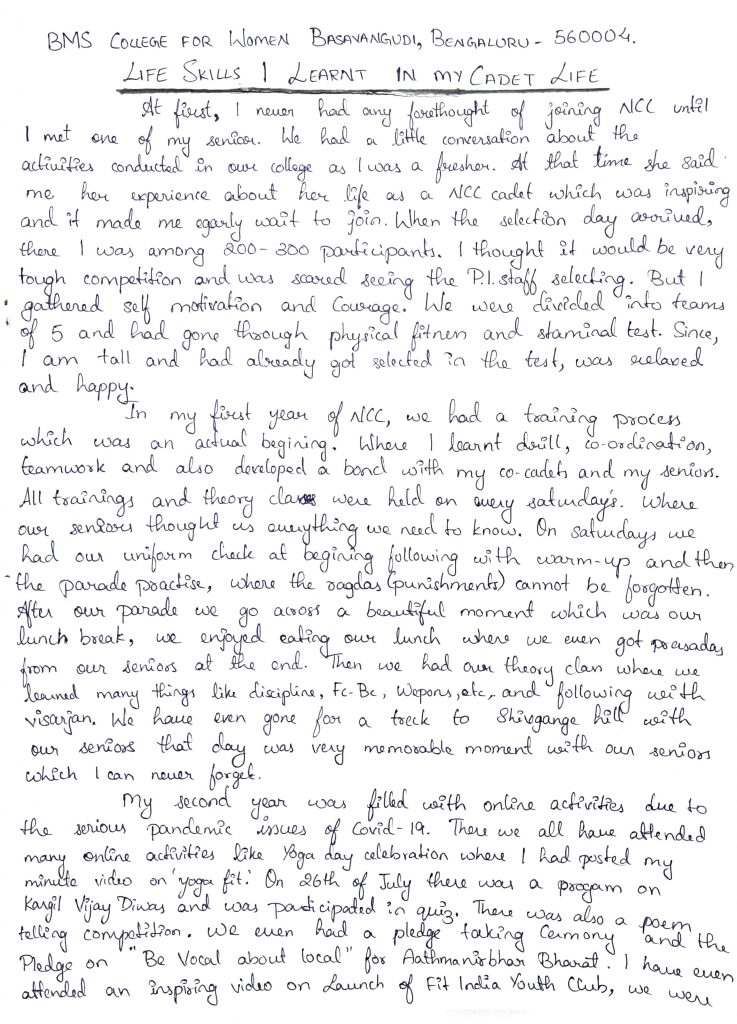 BMS COLLEGE FOR WOMEN BASAVANGUDI, BENGALURU - 560004.
LIFE SKILLS I LEARNT IN MY CADET LIFE
At first, I never had any forethought of joining NCC until
I met one of my senior. We had a little conversation about the
activities conducted in our college as I was a fresher. At that time she said
me her experience about her life as a NCC cadet which was inspiring
and it made me egarly wait to join. When the selection day arrived,
there I was among 200-300 participants. I thought it would be very
tough competition and was scared seeing the P.I. staff selecting. But I
gathered self motivation and Courage. We were divided into teams
of 5 and had gone through physical fitness and staminal test. Since,
I am tall and had already got selected in the test, was relaxed
and happy.
In my first year of NCC, we had a training process
which was an actual begining. Where I learnt drill, co-ordination,
teamwork and also developed a bond with my co-cadets and my seniors.
All trainings and theory classes were held on every saturday's. Where
our seniors thought us everything we need to know. On saturdays we
had our uniform check at begining following with warm-up and then
the parade practise, where the ragdas (punishments) cannot be forgotten.
After our parade we go across a beautiful moment which was our
lunch break, we enjoyed eating our lunch where we even got prasadas
from our seniors at the end. Then we had our theory class where we
learned many things like discipline, Fc-Bc, Wepons, etc, and following with
visarjan. We have even gone for a treck to Shivgange hill with
our seniors that day was very memorable moment with our seniors
which I can never forget.
My second year was filled with online activities due to
the serious pandemic issues of Covid-19. There we all have attended
many online activities like Yoga day celebration where I had posted my
minute video on 'yoga fit.' On 26th of July there was a progam on
Kargil Vijay Diwas and was participated in quiz. There was also a poem
telling competition. We even had a pledge taking Cermony and the
Pledge on "Be Vocal about local" for Aathmanirbhar Bharat. I have even
attended an inspiring video on Launch of Fit India Youth Club, we were